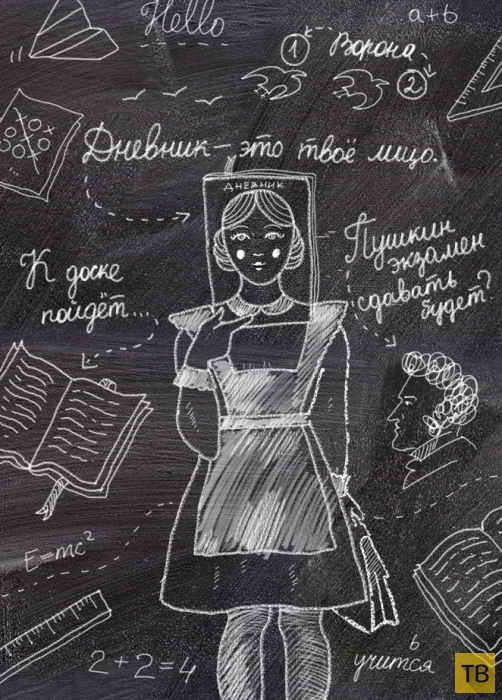 Hello
a+b
1 Ворона 2
Дневник – это твоё лицо.
ДНЕВНИК
Пушкин
экзамен
сдавать
будет?
К доске
пойдёт...
E=mc²
2+2=4
ь
учится
ТВ